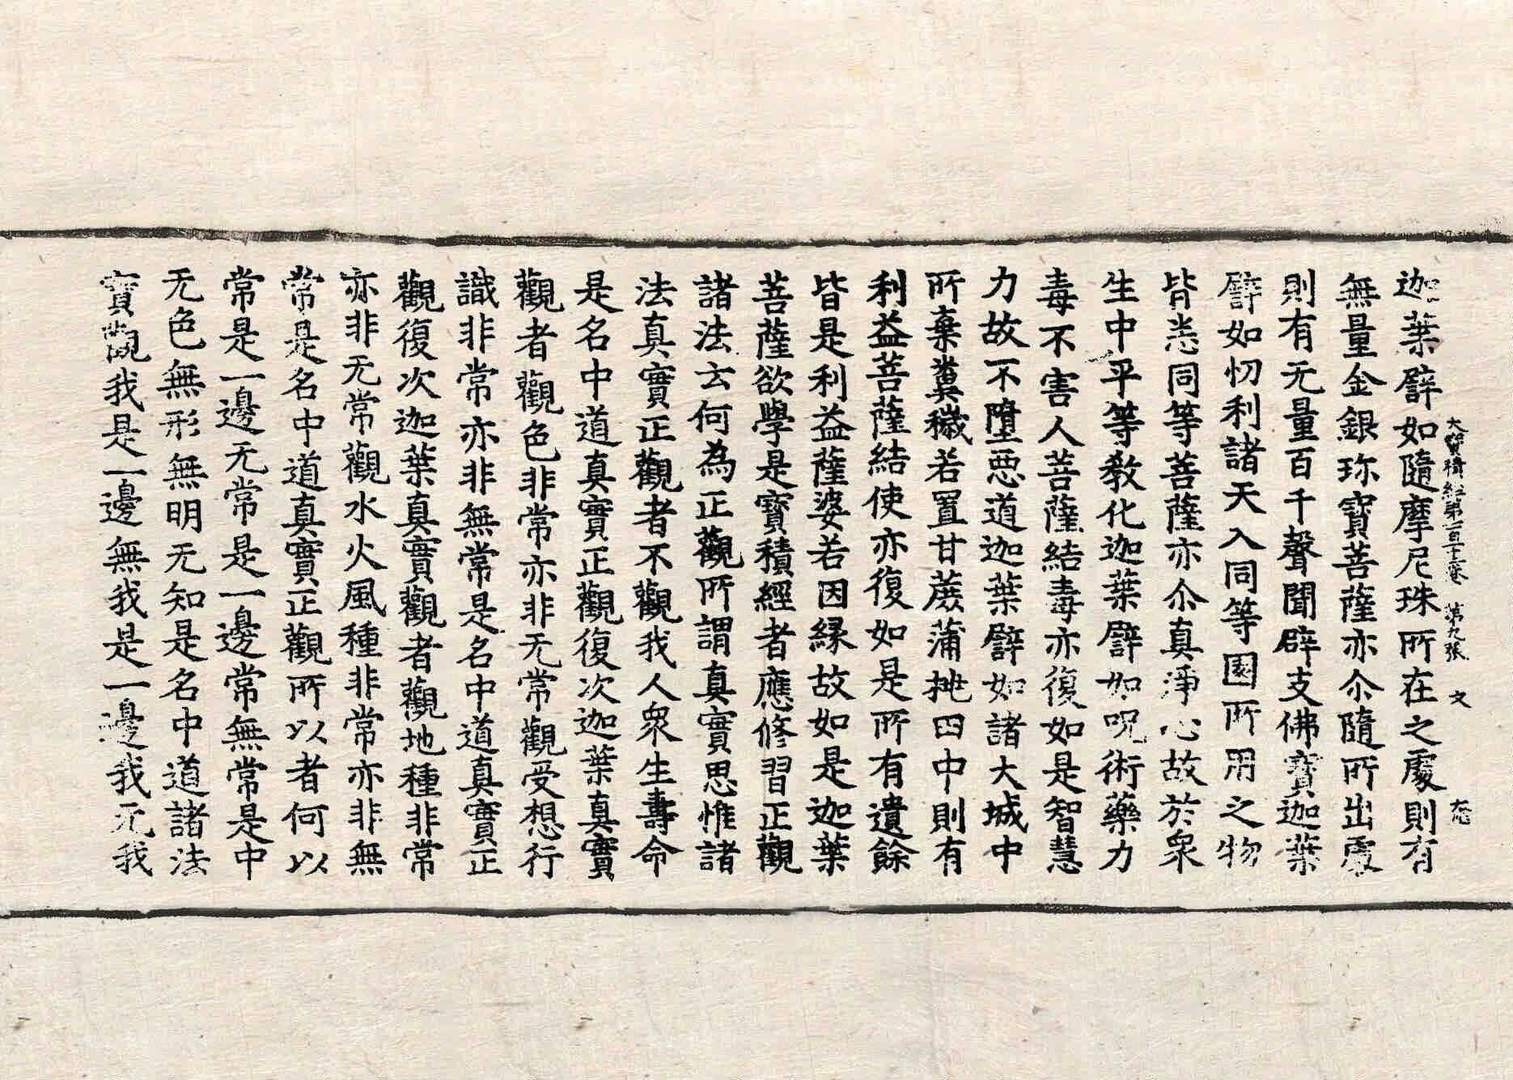 大寳積經第一百十二卷 第九張 文
迦葉譬如隨摩尼珠所在之處則有
無量金銀珎寶菩薩亦尒隨所出處
則有无量百千聲聞辟支佛寶迦葉
譬如忉利諸天入同等園所用之物
皆悉同等菩薩亦尒真淨心故於衆
生中平等教化迦葉譬如呪術藥力
毒不害人菩薩結毒亦復如是智慧
力故不墮惡道迦葉譬如諸大城中
所棄糞穢若置甘蔗蒲桃田中則有
利益菩薩結使亦復如是所有遺餘
皆是利益薩婆若因縁故如是迦葉
菩薩欲學是寶積經者應修習正觀
諸法云何為正觀所謂真實思惟諸
法真實正觀者不觀我人衆生壽命
是名中道真實正觀復次迦葉真實
觀者觀色非常亦非无常觀受想行
識非常亦非無常是名中道真實正
觀復次迦葉真實觀者觀地種非常
亦非无常觀水火風種非常亦非無
常是名中道真實正觀所以者何以
常是一邊无常是一邊常無常是中
无色無形無明无知是名中道諸法
實觀我是一邊無我是一邊我无我